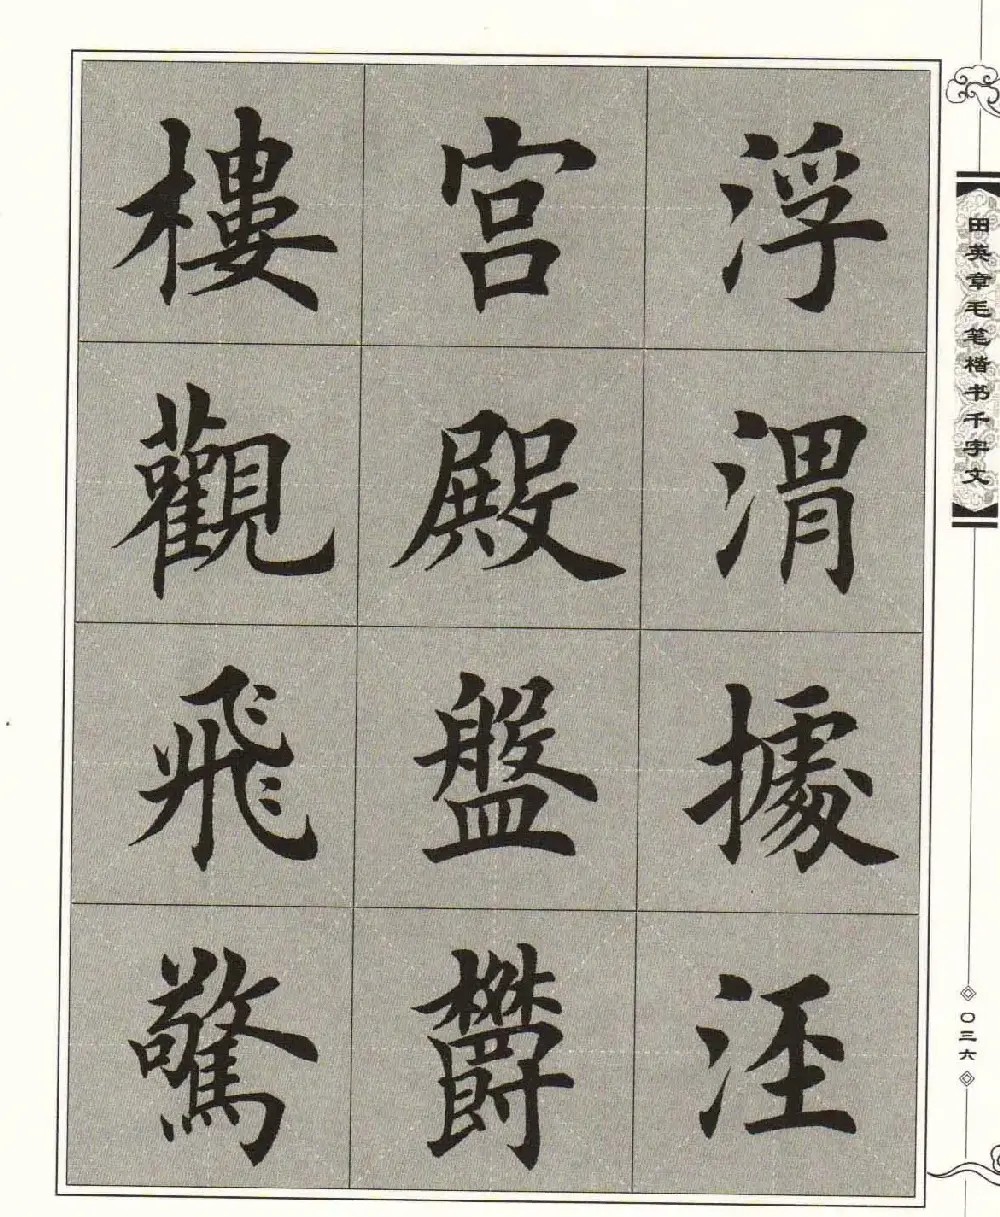 浮渭據泾
宫殿盤欝
樓觀飛驚
田英章毛笔楷书千字文
〇三六